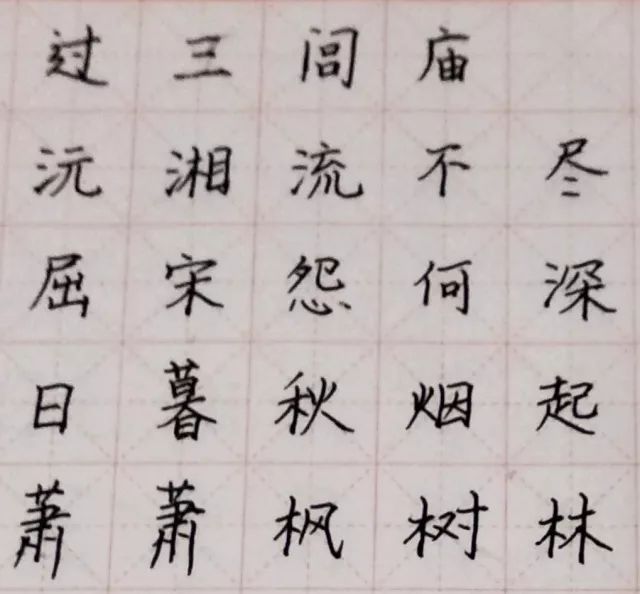 过三闾庙
沅湘流不尽
屈宋怨何深
日暮秋烟起
萧萧枫树林